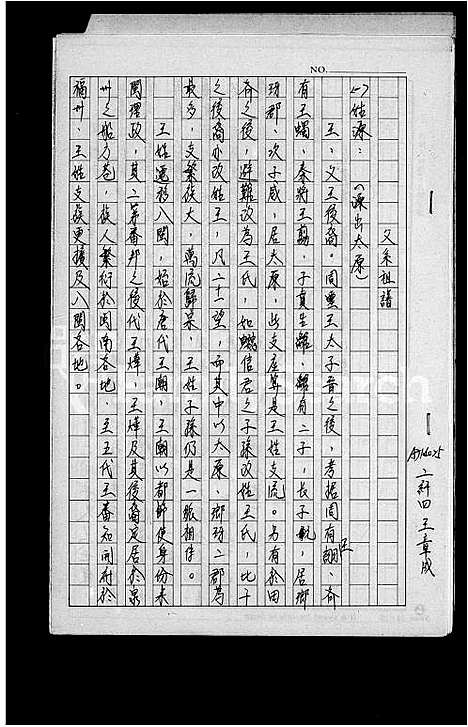 NO.
父系祖譜
(一)姓源:(源出太原)
王,文王後裔。周靈王太子晉之後,考據周有王翽,齊
有王蠋,秦將王翦,子賁生離,離有二子,長子元,居瑯
玡郡,次子威,居太原,此支應算是王姓支流。另有於田
齊之後,避難改為王氏,如信君之子孫改姓王氏,比干
之後裔亦改姓王,凡二十一望,而其中以太原,瑯玡二郡為
最多,支繁族大,萬流歸宗,王姓子孫仍是一脈相傳。
王姓遷移入閩,始於唐代王潮,王潮以都節使身份來
閩理政,其二弟審邽之後代王燁,王燁及其後裔定居於泉
州之船方巷,族人繁衍於閩南各地,至五代王審知開府於
福州,王姓支族更擴及八閩各地。
二計四 王章成